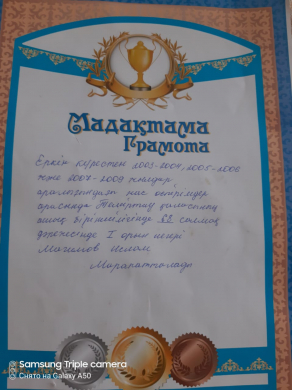 Мадақтама
Грамота
Еркін күрестен 2003-2004, 2005-2006
және 2007-2009 жылдар
аралығындағы жас өспірімдер
арасында Теміртау қаласының
ашық біріншілігінде 52 салмақ
дәрежесінде I орын иегері
Магинов Ислам
Марапатталады
Samsung Triple camera
Снято на Galaxy A50